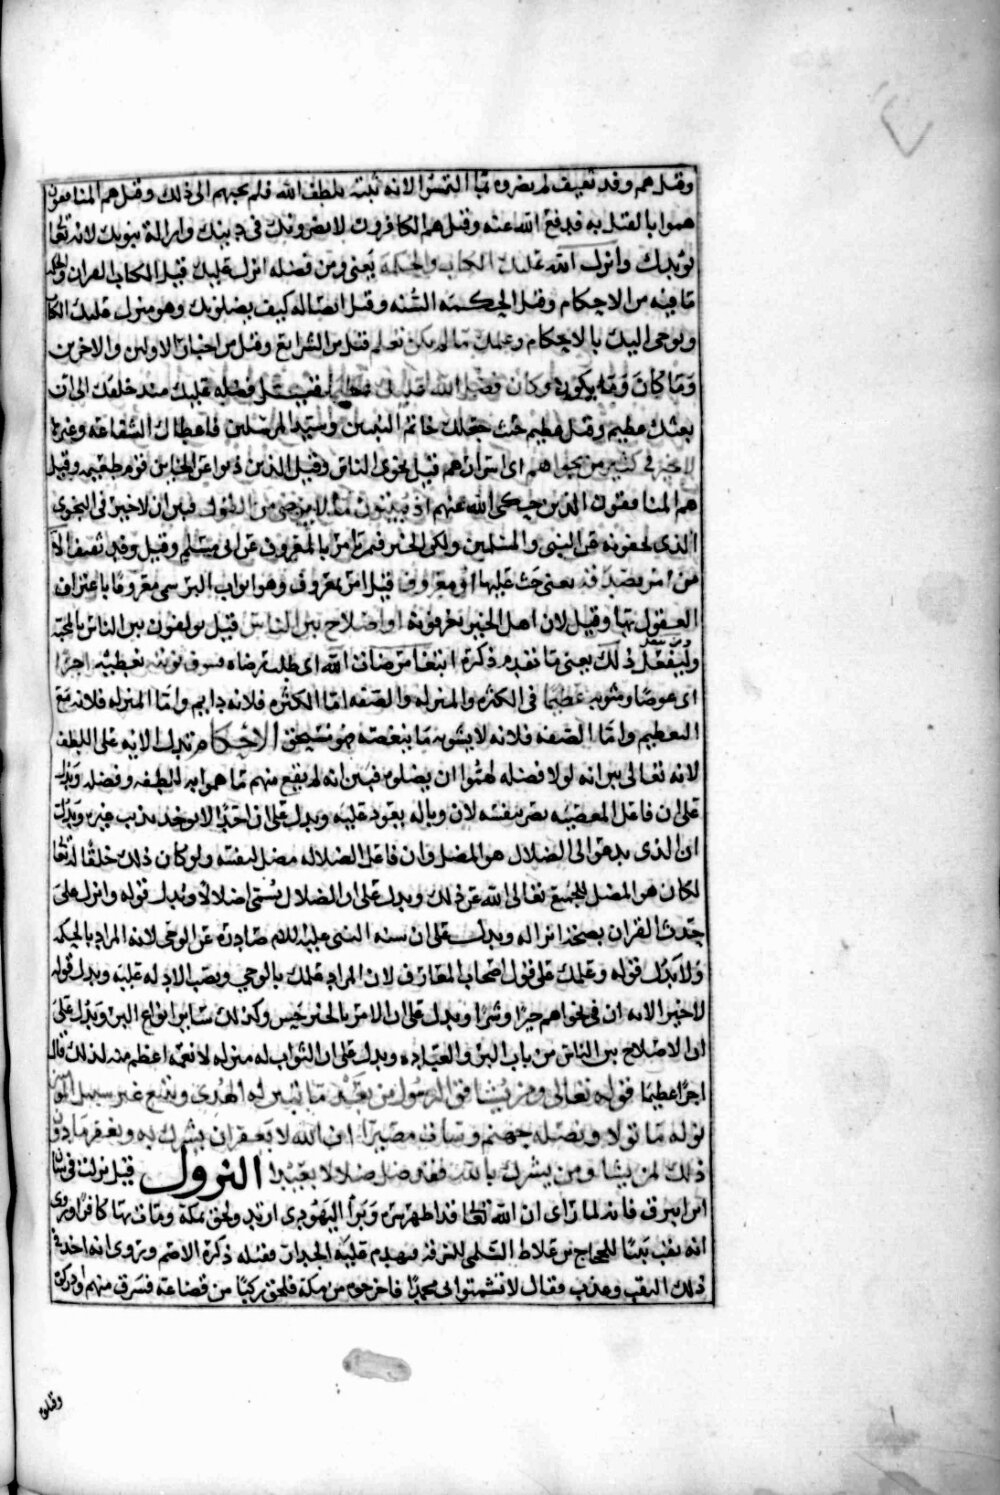 وقيل هم وفد ثقيف لم يضروه بما التمسوا لانه ثبته بلطف الله فلم يجبهم الى ذلك وقيل هم المنافقون
هموا بالقتل به فدفع الله عنه وقيل هم الكافرون لا يضرونك في دينك وازالة نبوتك لانه تعالى
يؤيدك وانزل الله عليك الكتاب والحكمة يعني ومن فضله انزل عليك قيل الكتاب القران والحكمة
ما فيه من الاحكام وقيل الحكمة السنه وقيل اتصاله كيف يضلونك وهو منزل عليك الكتاب
ويوحى اليك بالاحكام وعلمك ما لم يكن تعلم قيل من الشرائع وقيل من اخبار الاولين والاخرين
وما كان وما يكون وكان فضل الله عليك عظيما قيل فضله عليك منذ خلقك الى ان
بعثك عظيم وقيل عظيم حيث جعلك خاتم النبيين وسيد المرسلين فاعطاك الشفاعة وغيرها
لا خير في كثير من نجواهم اي اسرارهم قيل نجوى الناس وقيل الذين ذبوا عن الخائن قوم طعمه وقيل
هم المنافقون الذين حكى الله عنهم اذ يبيتون ما لا يرضى من القول فبين ان لا خير في النجوى
الذي يخفونه عن النبي والمسلمين ولكن الخير فيمن امر بالمعروف عن ابي مسلم وقيل وفد ثقيف الا
من امر بصدقه يعني حث عليها او معروف قيل امر بمعروف وهو ابواب البر سمي معروفا باعتراف
العقول بها وقيل لان اهل الخير يعرفونه او اصلاح بين الناس قيل يؤلفون بين الناس بالمحبة
ومن يفعل ذلك يعني ما تقدم ذكره ابتغا مرضات الله اي طلب رضاه فسوف نوتيه نعطيه اجرا
اي عوضا ومثوبه عظيما في الكثره والمنزله والصفه اما الكثره فلانه دايم واما المنزله فلانه مع
التعظيم واما الصفه فلانه لا يشوبه ما ينغصه الاحكام تدل الايه على اللطف
لانه تعالى بين انه لولا فضله لهموا ان يضلوه فبين انه لم يقع منهم ما هموا به للطفه وفضله ويدل
على ان فاعل المعصيه يضر نفسه لان وباله يعود عليه ويدل على ان احدا لا يوخذ بذنب غيره ويدل
ان الذي يدعو الى الضلال هو المضل وان فاعل الضلاله مضل لنفسه ولو كان ذلك خلقا لله تعالى
لكان هو المضل للجميع تعالى الله عن ذلك ويدل على ان الضلال يسمى اضلالا ويدل قوله وانزل على
حدث القران بصحة انزاله ويدل على ان سنه النبي عليه السلام صادره عن الوحي لانه المراد بالحكمه
ولا يدل قوله وعلمك على قول اصحاب المعارف لان المراد علمك بالوحي ونصب الادله عليه ويدل قوله
لا خير الايه ان في نجواهم خيرا وشرا ويدل على ان الامر بالخير خير وكذلك ساير انواع البر ويدل على
ان الاصلاح بين الناس من باب البر والعباده ويدل على ان الثواب له منزله لا نعمه اعظم منه لذلك قال
اجرا عظيما قوله تعالى ومن يشاقق الرسول من بعد ما تبين له الهدى ويتبع غير سبيل المومنين
نوله ما تولا ونصله جهنم وسات مصيرا ان الله لا يغفر ان يشرك به ويغفر ما دون
ذلك لمن يشا ومن يشرك بالله فقد ضل ضلالا بعيدا النزول قيل نزلت في شان
ابن ابيرق فانه لما راى ان الله تعالى قد اظهر سره وبرأ اليهودي ارتد ولحق بمكة ومات بها كافرا وروي
انه نقب بيتا للحجاج بن علاط السلمي للسرقة فتهدم عليه الجدار فقتله ذكره الاصم وروي انه اخذ في
ذلك النقب وعذب فقال لا تشمتوا بي محمدا فاخرجوه من مكة فلحق ركبا من قضاعه فسرق منهم